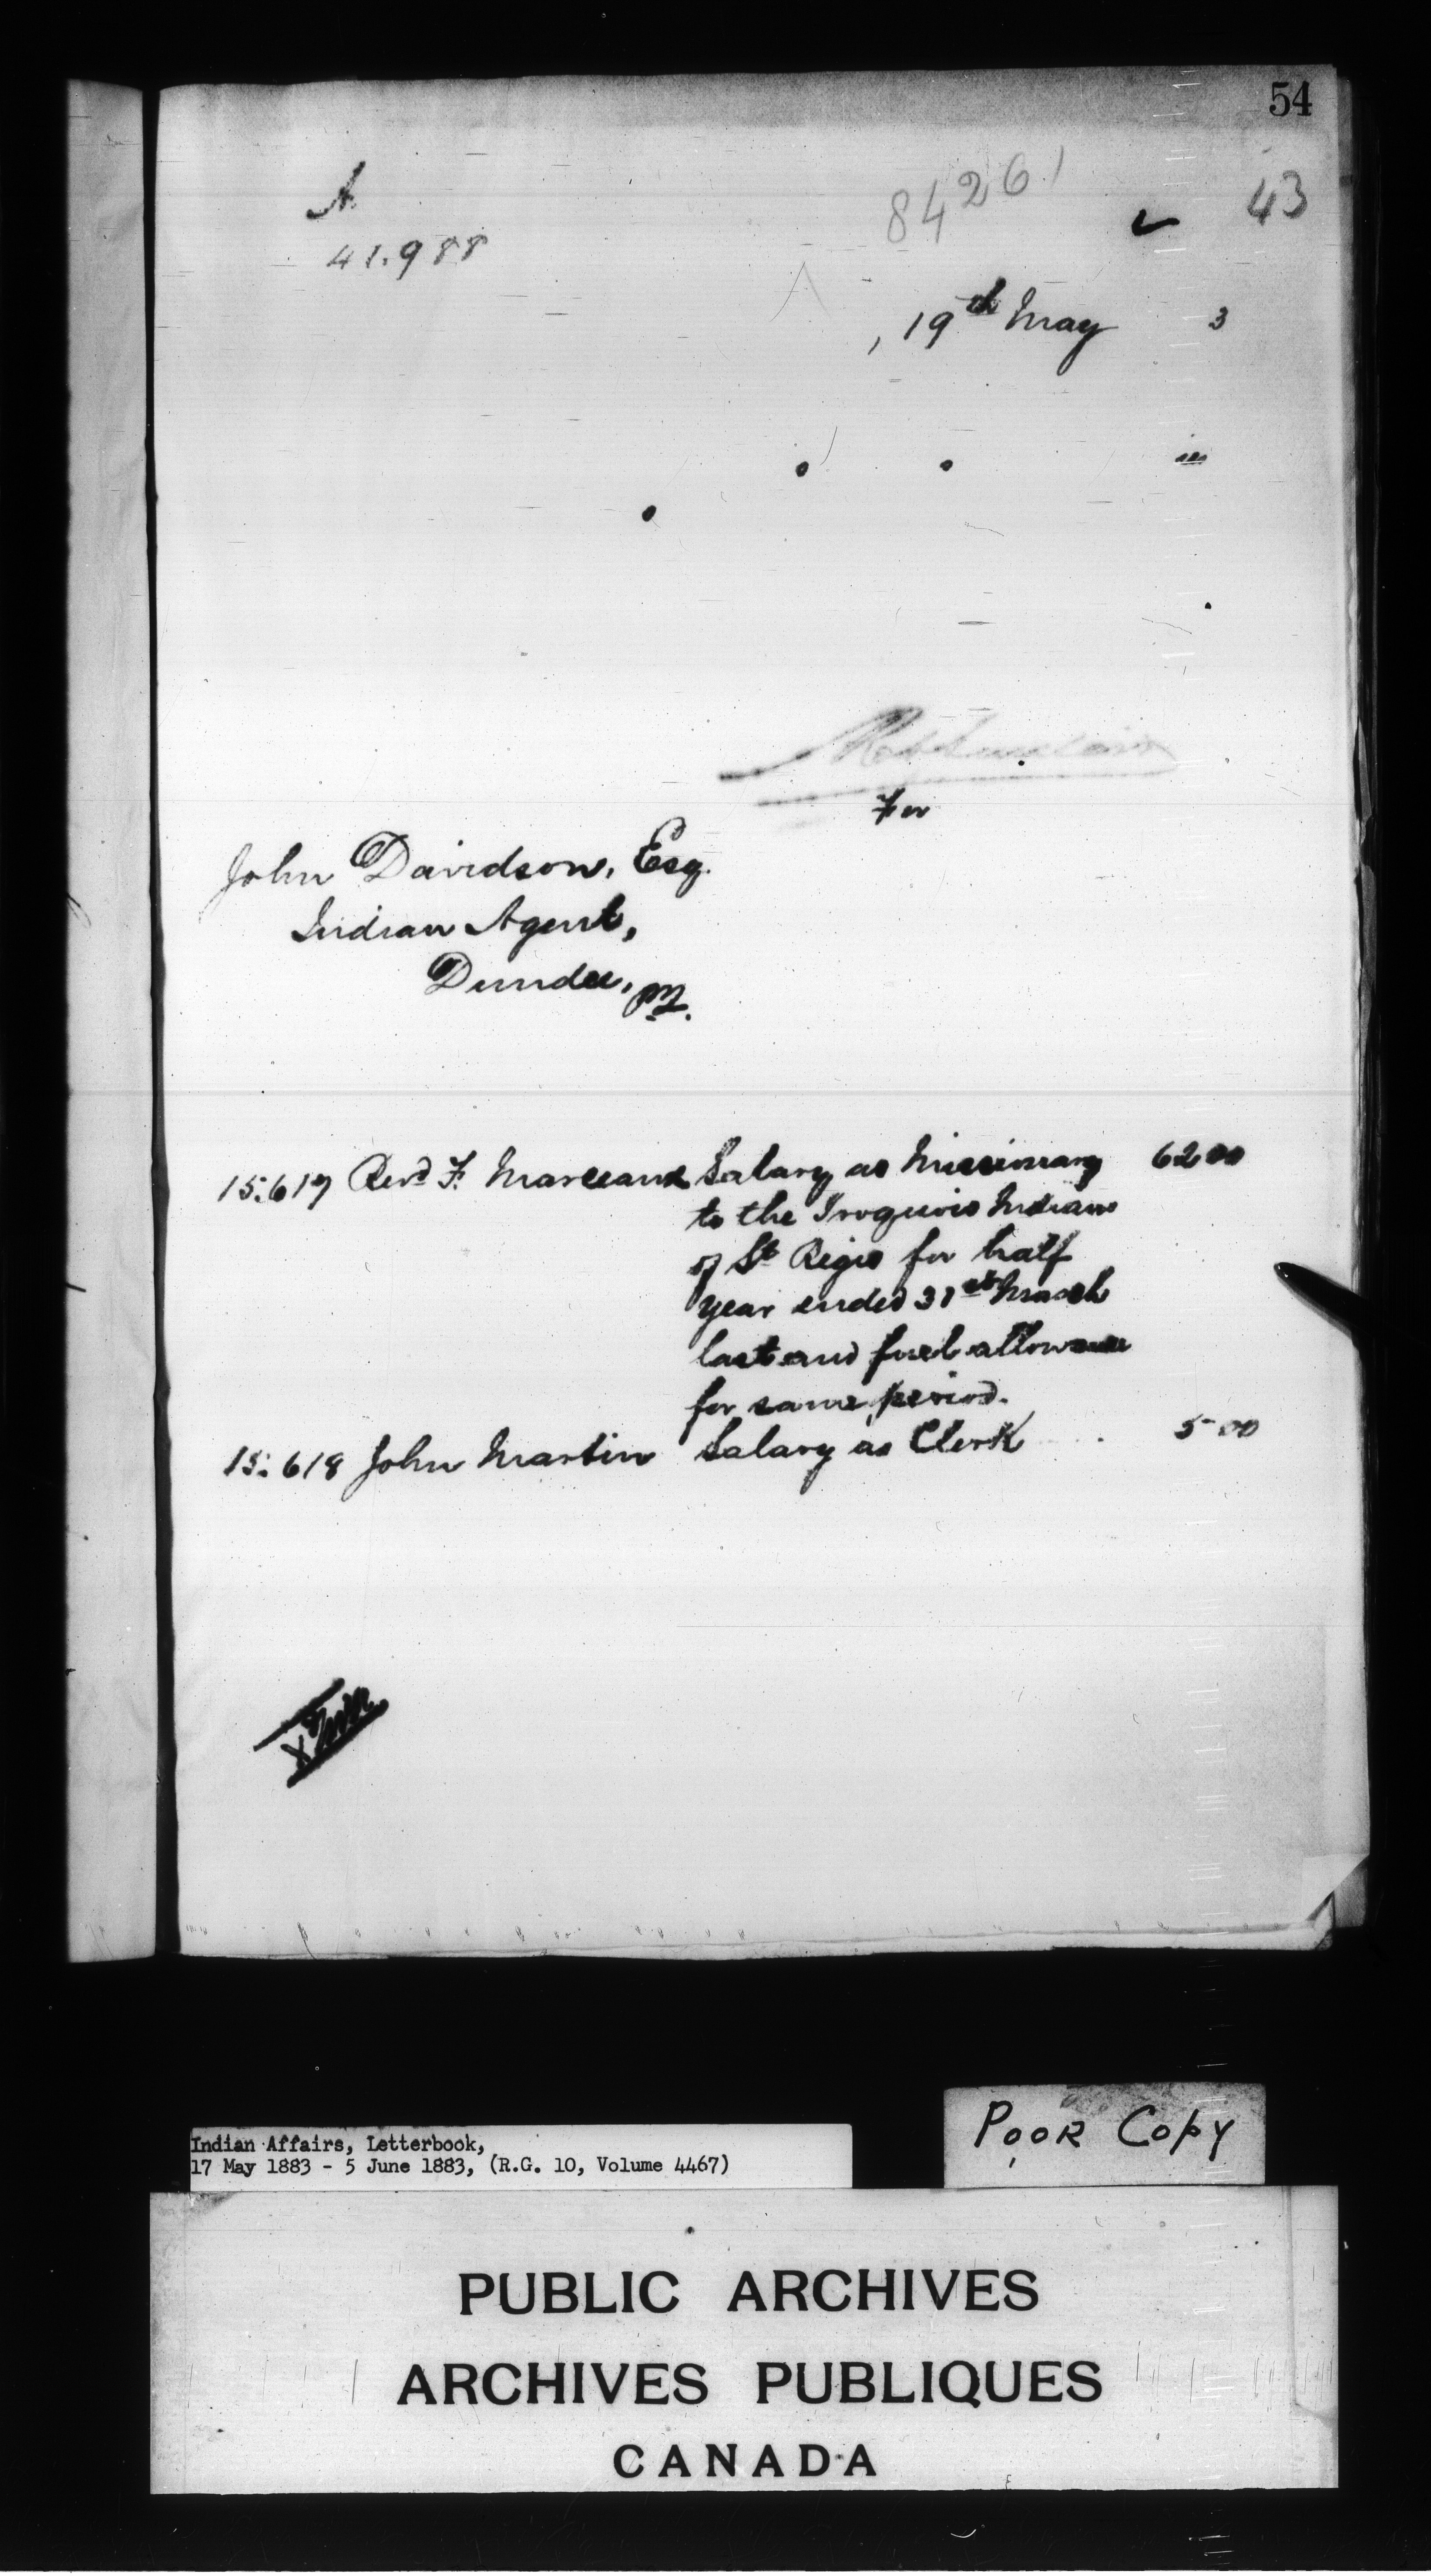 54
84261
43
A
41.988
, 19th May 3
in
For
John Davidson, Esq.
Indian Agent,
Dundee,
15.617 Revd F. Marceaux Salary as Missionary 62 00
to the Iroquois Indians
of St Regis for half
year ended 31st March
last and fuel allowance
for same period.
15.618 John Martin Salary as Clerk 5 00
Indian Affairs, Letterbook,
17 May 1883 - 5 June 1883, (R.G. 10, Volume 4467)
POOR COPY
PUBLIC ARCHIVES
ARCHIVES PUBLIQUES
CANADA